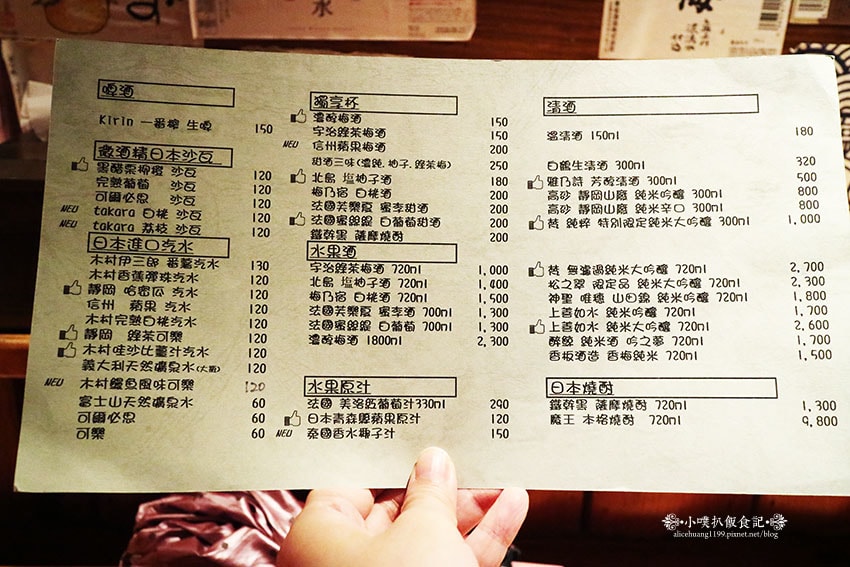 水
啤酒
Kirin 一番榨 生啤 150
微酒精日本沙瓦
黑醋栗柳橙 沙瓦 120
完熟葡萄 沙瓦 120
可爾必思 沙瓦 120
NEW takara 白桃 沙瓦 120
NEW takara 荔枝 沙瓦 120
日本進口汽水
木村伊三郎 番薑汽水 130
木村香蕉彈珠汽水 120
靜岡 哈密瓜 汽水 120
信州 蘋果 汽水 120
木村完熟白桃汽水 120
靜岡 綠茶可樂 120
木村哇沙比薑汁汽水 120
義大利天然礦泉水(大瓶) 120
NEW 木村鰻魚風味可樂 120
富士山天然礦泉水 60
可爾必思 60
可樂 60
獨享杯
濃醇梅酒 150
宇治綠茶梅酒 150
NEW 信州蘋果梅酒 200
甜酒三味(濃醇.柚子.綠茶梅) 250
北島 塩柚子酒 180
梅乃宿 白桃酒 200
法國芙樂夏 蜜李甜酒 200
法國蜜絲緹 白葡萄甜酒 200
鐵幹黑 薩摩燒酎 200
水果酒
宇治綠茶梅酒 720ml 1,000
北島 塩柚子酒 720ml 1,400
梅乃宿 白桃酒 720ml 1,500
法國芙樂夏 蜜李酒 700ml 1,300
法國蜜絲緹 白葡萄 700ml 1,300
濃醇梅酒 1800ml 2,300
水果原汁
法國 美洛匹葡萄汁330ml 290
日本青森縣蘋果原汁 120
NEW 泰國香水椰子汁 150
清酒
溫清酒 150ml 180
白鶴生清酒 300ml 320
雅乃詩 芳醇清酒 300ml 500
高砂 靜岡山廢 純米吟釀 300ml 800
高砂 靜岡山廢 純米辛口 300ml 800
梵 純粹 特別限定純米大吟釀 300ml 1,000
梵 無濾過純米大吟釀 720ml 2,700
松之翠 限定品 純米大吟釀 720ml 2,300
神聖 唯穗 山田錦 純米吟釀 720ml 1,800
上善如水 純米吟釀 720ml 1,700
上善如水 純米大吟釀 720ml 2,600
醉鯨 純米酒 吟之夢 720ml 1,700
香板酒造 香梅純米 720ml 1,500
日本燒酎
鐵幹黑 薩摩燒酎 720ml 1,300
魔王 本格燒酎 720ml 9,800
小噗扒飯食記
alicehuang1199.pixnet.net/blog